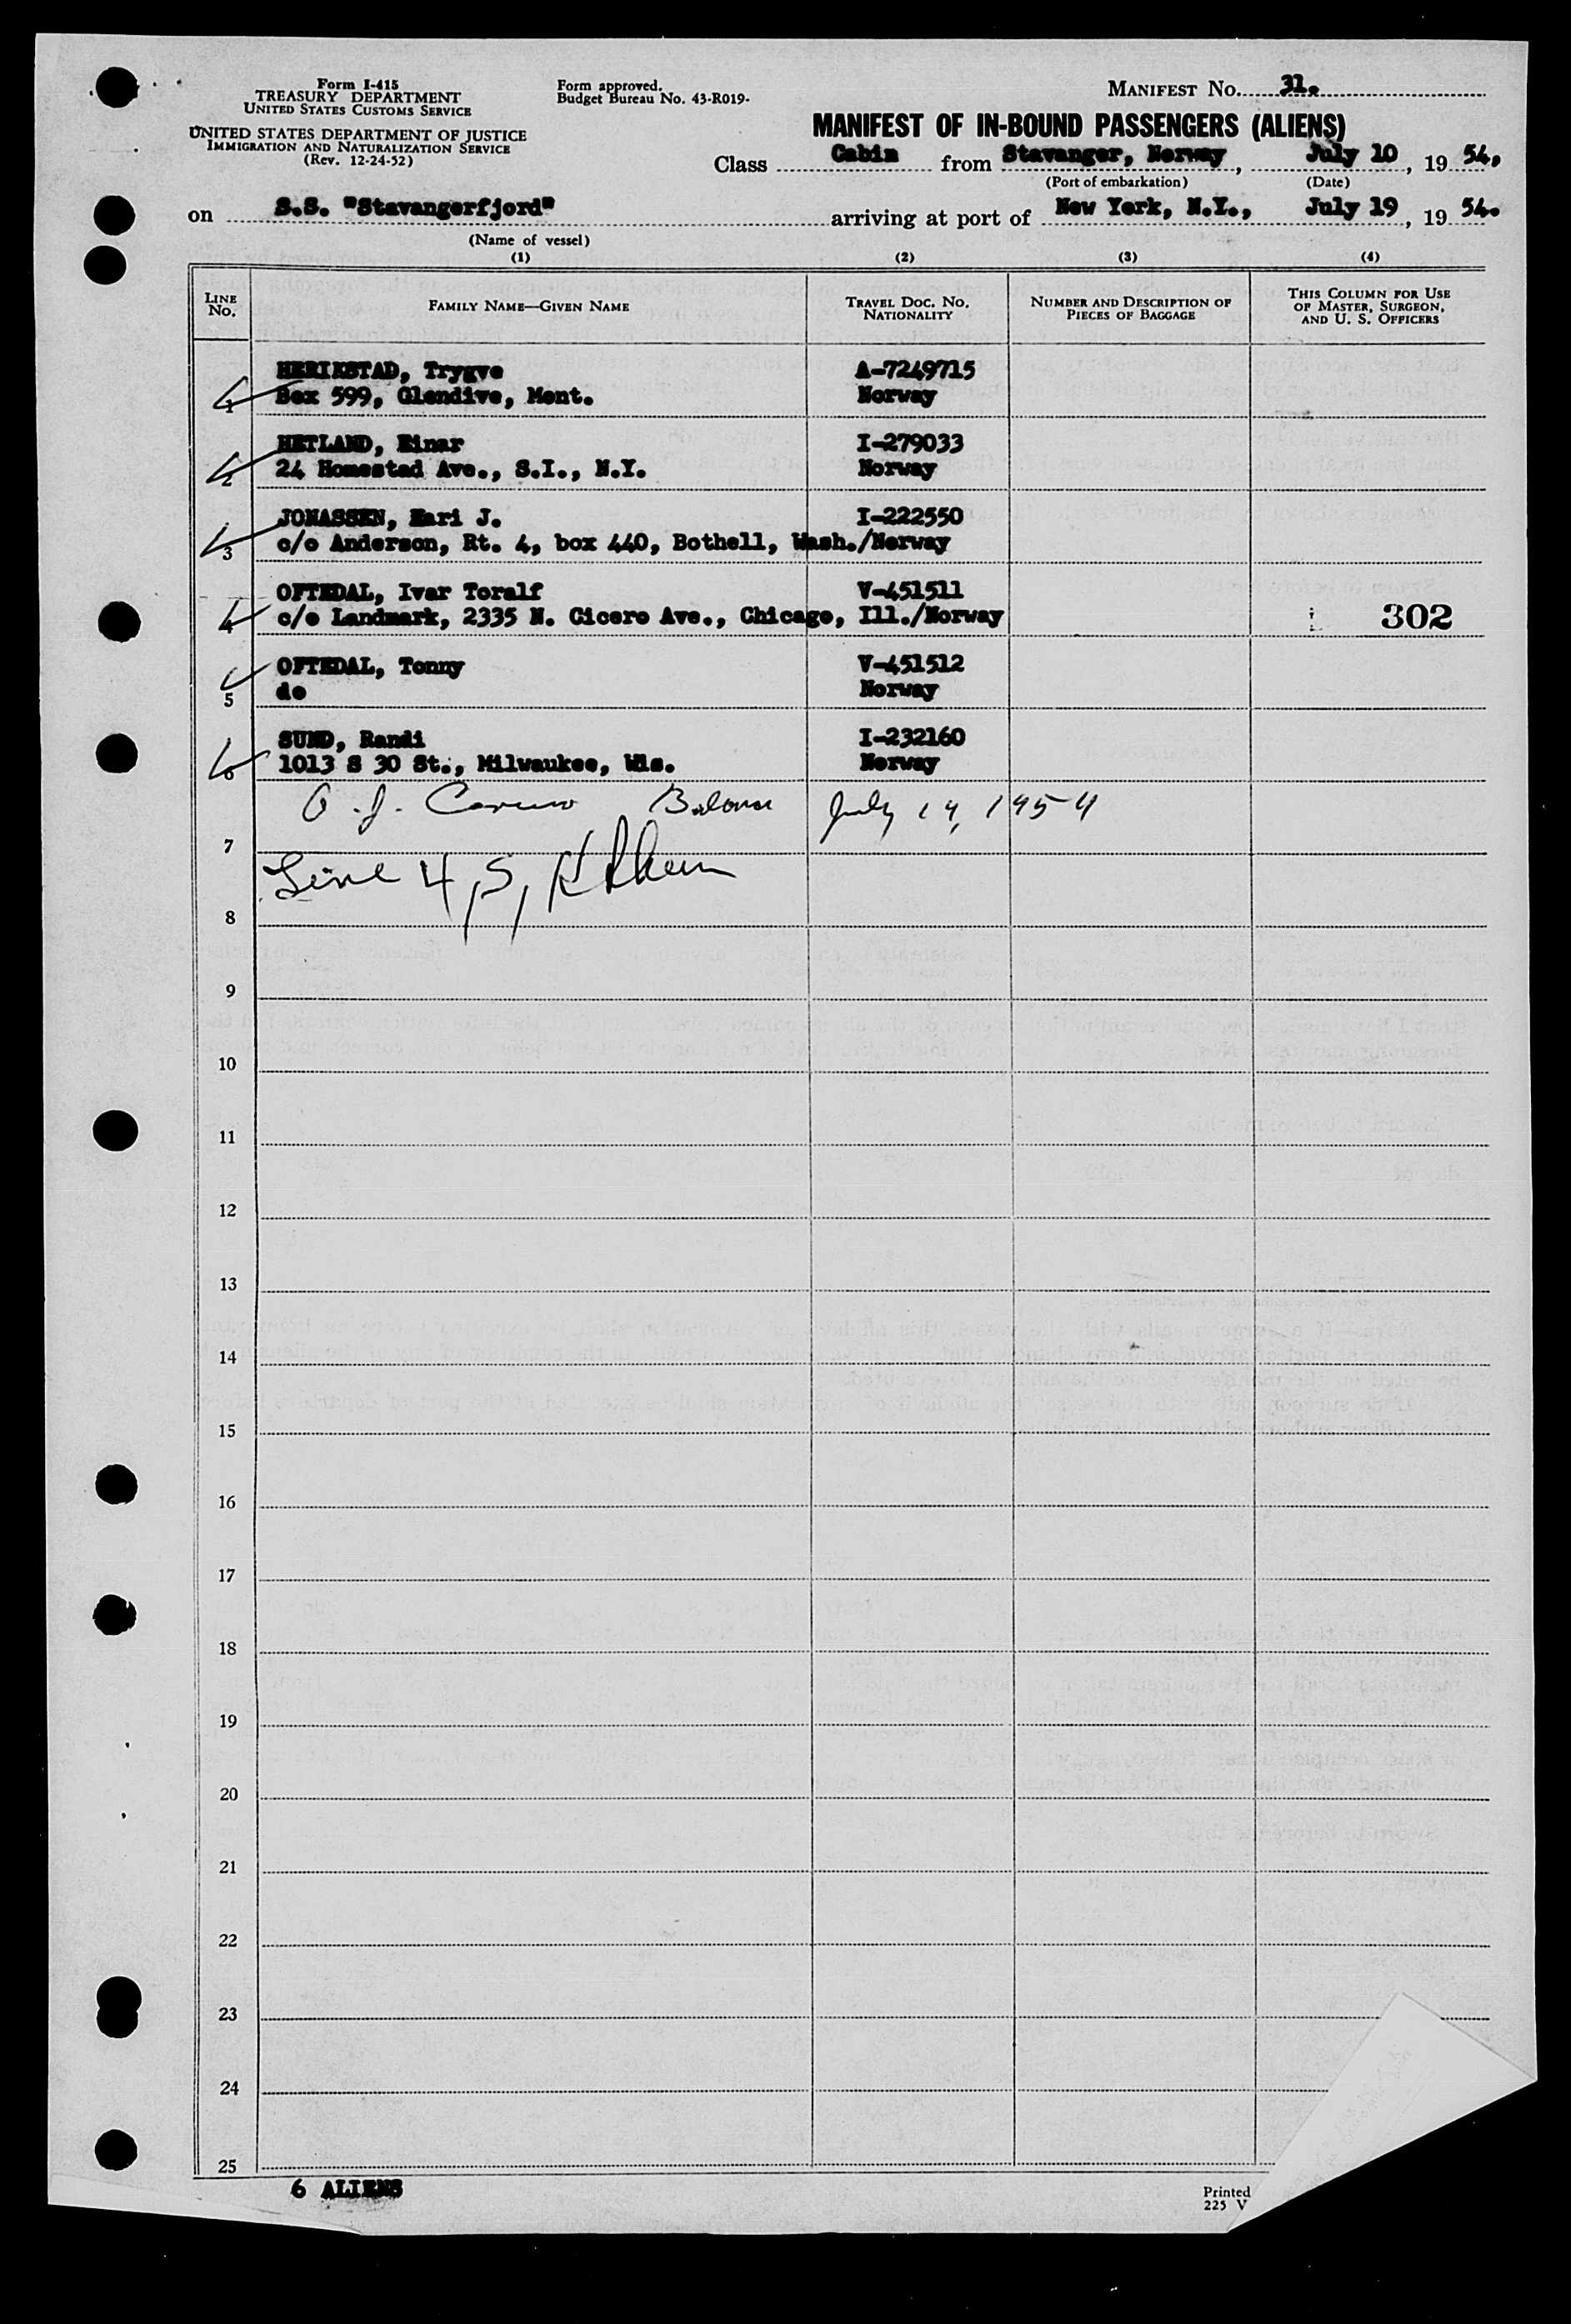 Form I-415
TREASURY DEPARTMENT
UNITED STATES CUSTOMS SERVICE
UNITED STATES DEPARTMENT OF JUSTICE
IMMIGRATION AND NATURALIZATION SERVICE
(Rev. 12-24-52)
Form approved.
Budget Bureau No. 43-R019-
MANIFEST NO. 31.
MANIFEST OF IN-BOUND PASSENGERS (ALIENS)
Class Cabin from Stavanger, Norway, July 10, 19 54,
(Port of embarkation) (Date)
on S.S. "Stavangerfjord" arriving at port of New York, N.Y., July 19, 19 54.
(Name of vessel)
(1) (2) (3) (4)
LINE NO. FAMILY NAME—GIVEN NAME TRAVEL DOC. NO. NATIONALITY NUMBER AND DESCRIPTION OF PIECES OF BAGGAGE THIS COLUMN FOR USE OF MASTER, SURGEON, AND U. S. OFFICERS
HERIKSTAD, Trygve A-7249715
1 Box 599, Glendive, Mont. Norway
HETLAND, Einar I-279033
2 24 Homestad Ave., S.I., N.Y. Norway
JONASSEN, Kari J. I-222550
3 c/o Anderson, Rt. 4, box 440, Bothell, Wash./Norway
OFTEDAL, Ivar Toralf V-451511
4 c/o Landmark, 2335 N. Cicero Ave., Chicago, Ill./Norway 302
OFTEDAL, Tonny V-451512
5 do Norway
SUND, Randi I-232160
6 1013 S 30 St., Milwaukee, Wis. Norway
July 19, 1954
7
Line 4, 5,
8
9
10
11
12
13
14
15
16
17
18
19
20
21
22
23
24
25
6 ALIENS
Printed
225 V